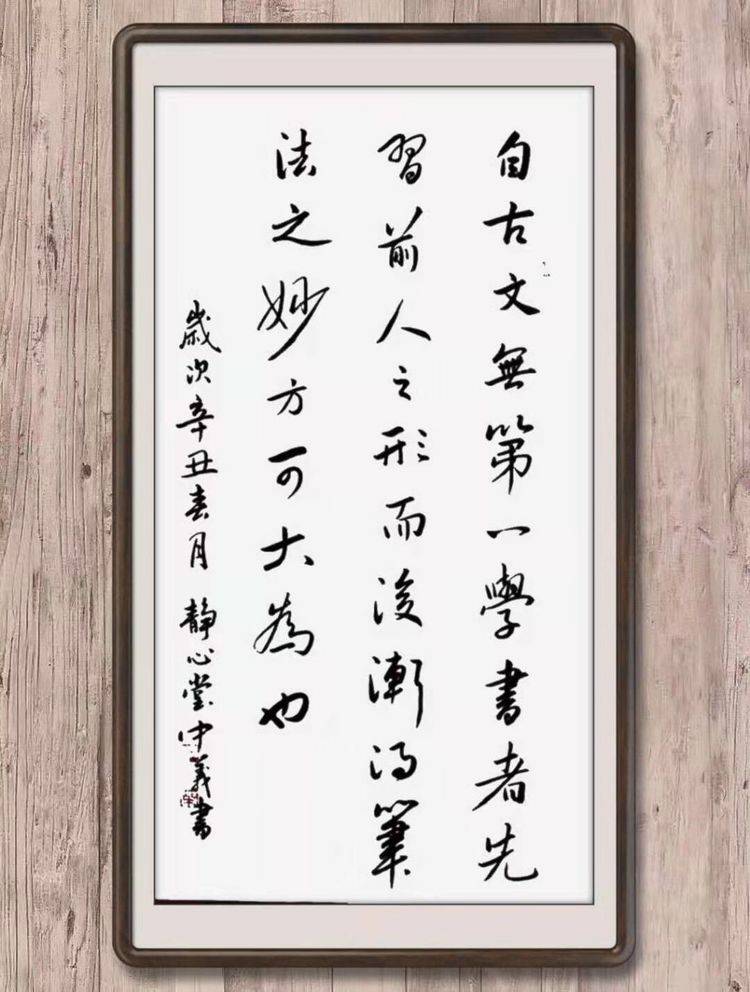 自古文無第一學書者先
習前人之形而後漸得筆
法之妙方可大為也
歲次辛丑春月靜心堂中義書